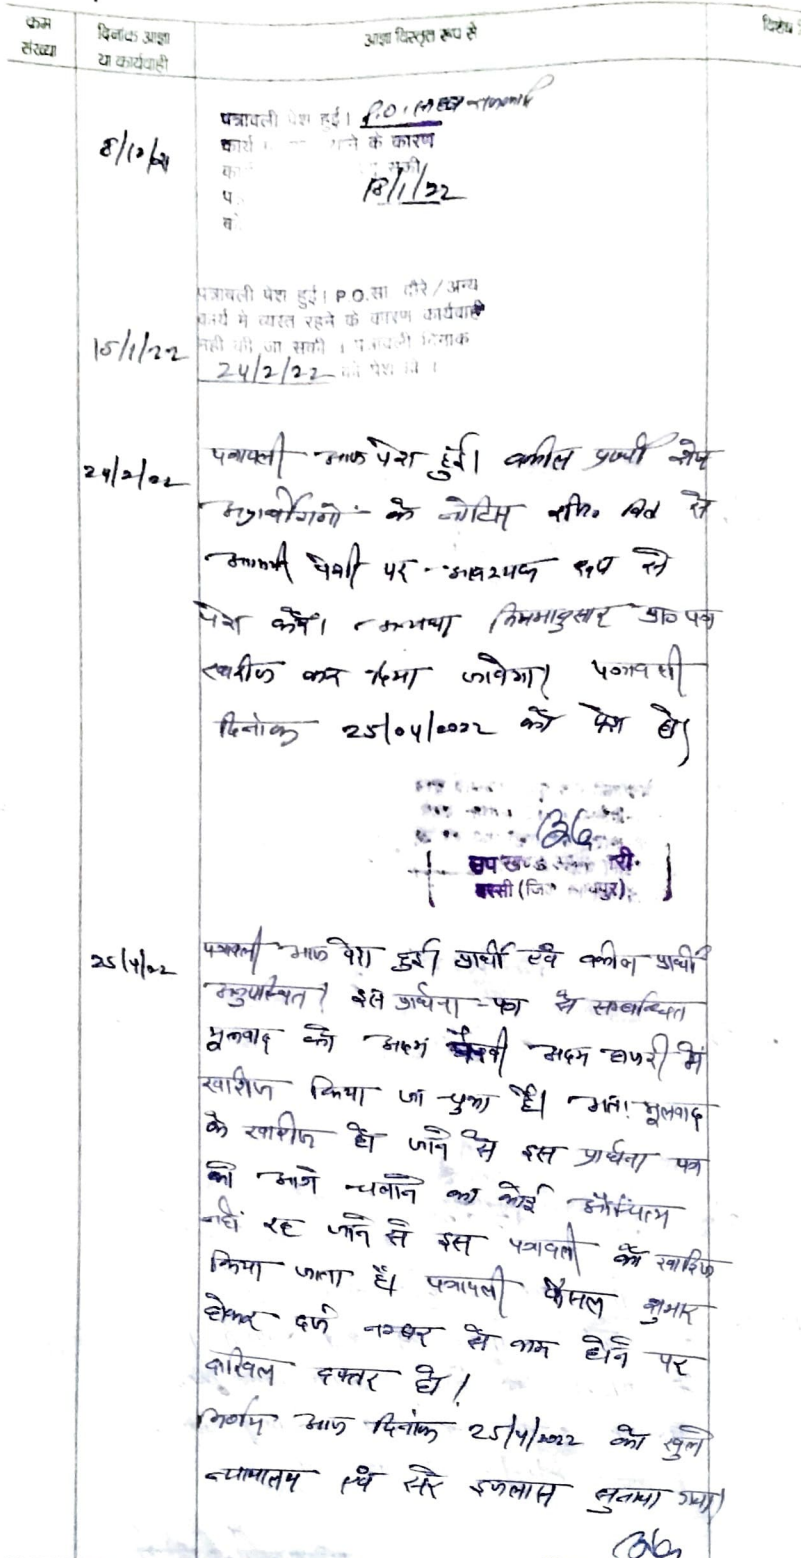 क्रम
संख्या
दिनांक आज्ञा
या कार्यवाही
आज्ञा विस्तृत रूप से
विशेष
8/12/21
पत्रावली पेश हुई। P.O.
कार्य के कारण
सकी
18/1/22
15/1/22
पत्रावली पेश हुई। P.O.सा दौरे/अन्य
कार्य मे व्यस्त रहने के कारण कार्यवाही
नही की जा सकी । पत्रावली दिनांक
24/2/22 को पेश
24/2/22
पत्रावली आज पेश हुई। वकील प्रार्थी शेष
अप्रार्थीगणों के नोटिस रजि० से
आगामी पेशी पर आवश्यक रूप से
पेश करें। अन्यथा नियमानुसार प्रा० पत्र
खारीज कर दिया जावेगा। पत्रावली
दिनांक 25/04/2022 को पेश हो।
उप खण्ड
बस्सी (जि
25/4/22
पत्रावली आज पेश हुई। प्रार्थी एवं वकील प्रार्थी
अनुपस्थित। इस प्रार्थना पत्र से सम्बन्धित
मूलवाद को अदम पैरवी अदम हाजरी में
खारीज किया जा चुका है। अतः मूलवाद
के खारीज हो जाने से इस प्रार्थना पत्र
को आगे चलाने का कोई औचित्य
नहीं रह जाने से इस पत्रावली को खारिज
किया जाता है। पत्रावली फैसल शुमार
होकर दर्ज नम्बर से कम होने पर
दाखिल दफ्तर हो।
निर्णय आज दिनांक 25/4/2022 को खुले
न्यायालय एवं सरे इजलास सुनाया गया।